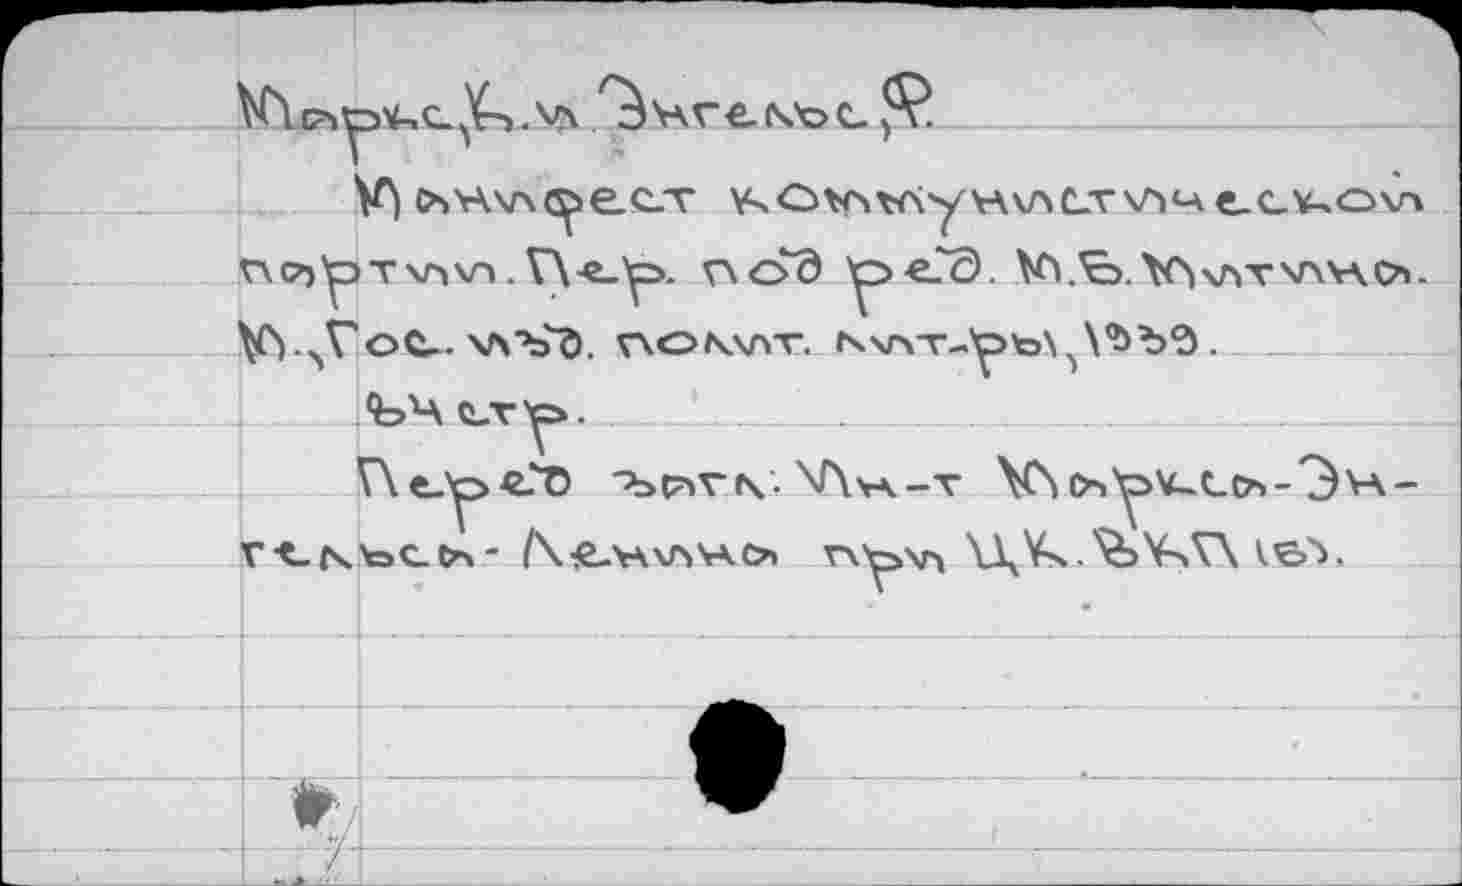 Маркс,К. и Энгельс,Ф.
Манифест коммунистической
партии. Пер. под ред. М.Б.Митина.
М.,Гос. изд. полит. лит-ры,1939.
стр.
Перед загл: Ин-т Маркса-Эн-
гельса-Ленина при ЦК.ВКП(б).